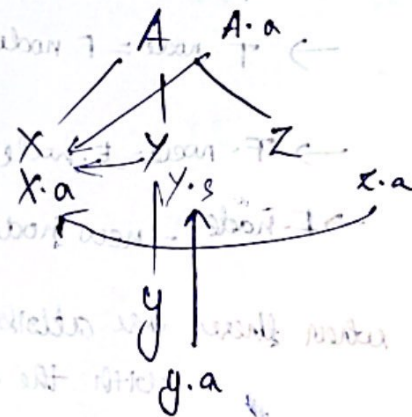 A A.a
X Y Z
X.a Y.s z.a
y
y.a